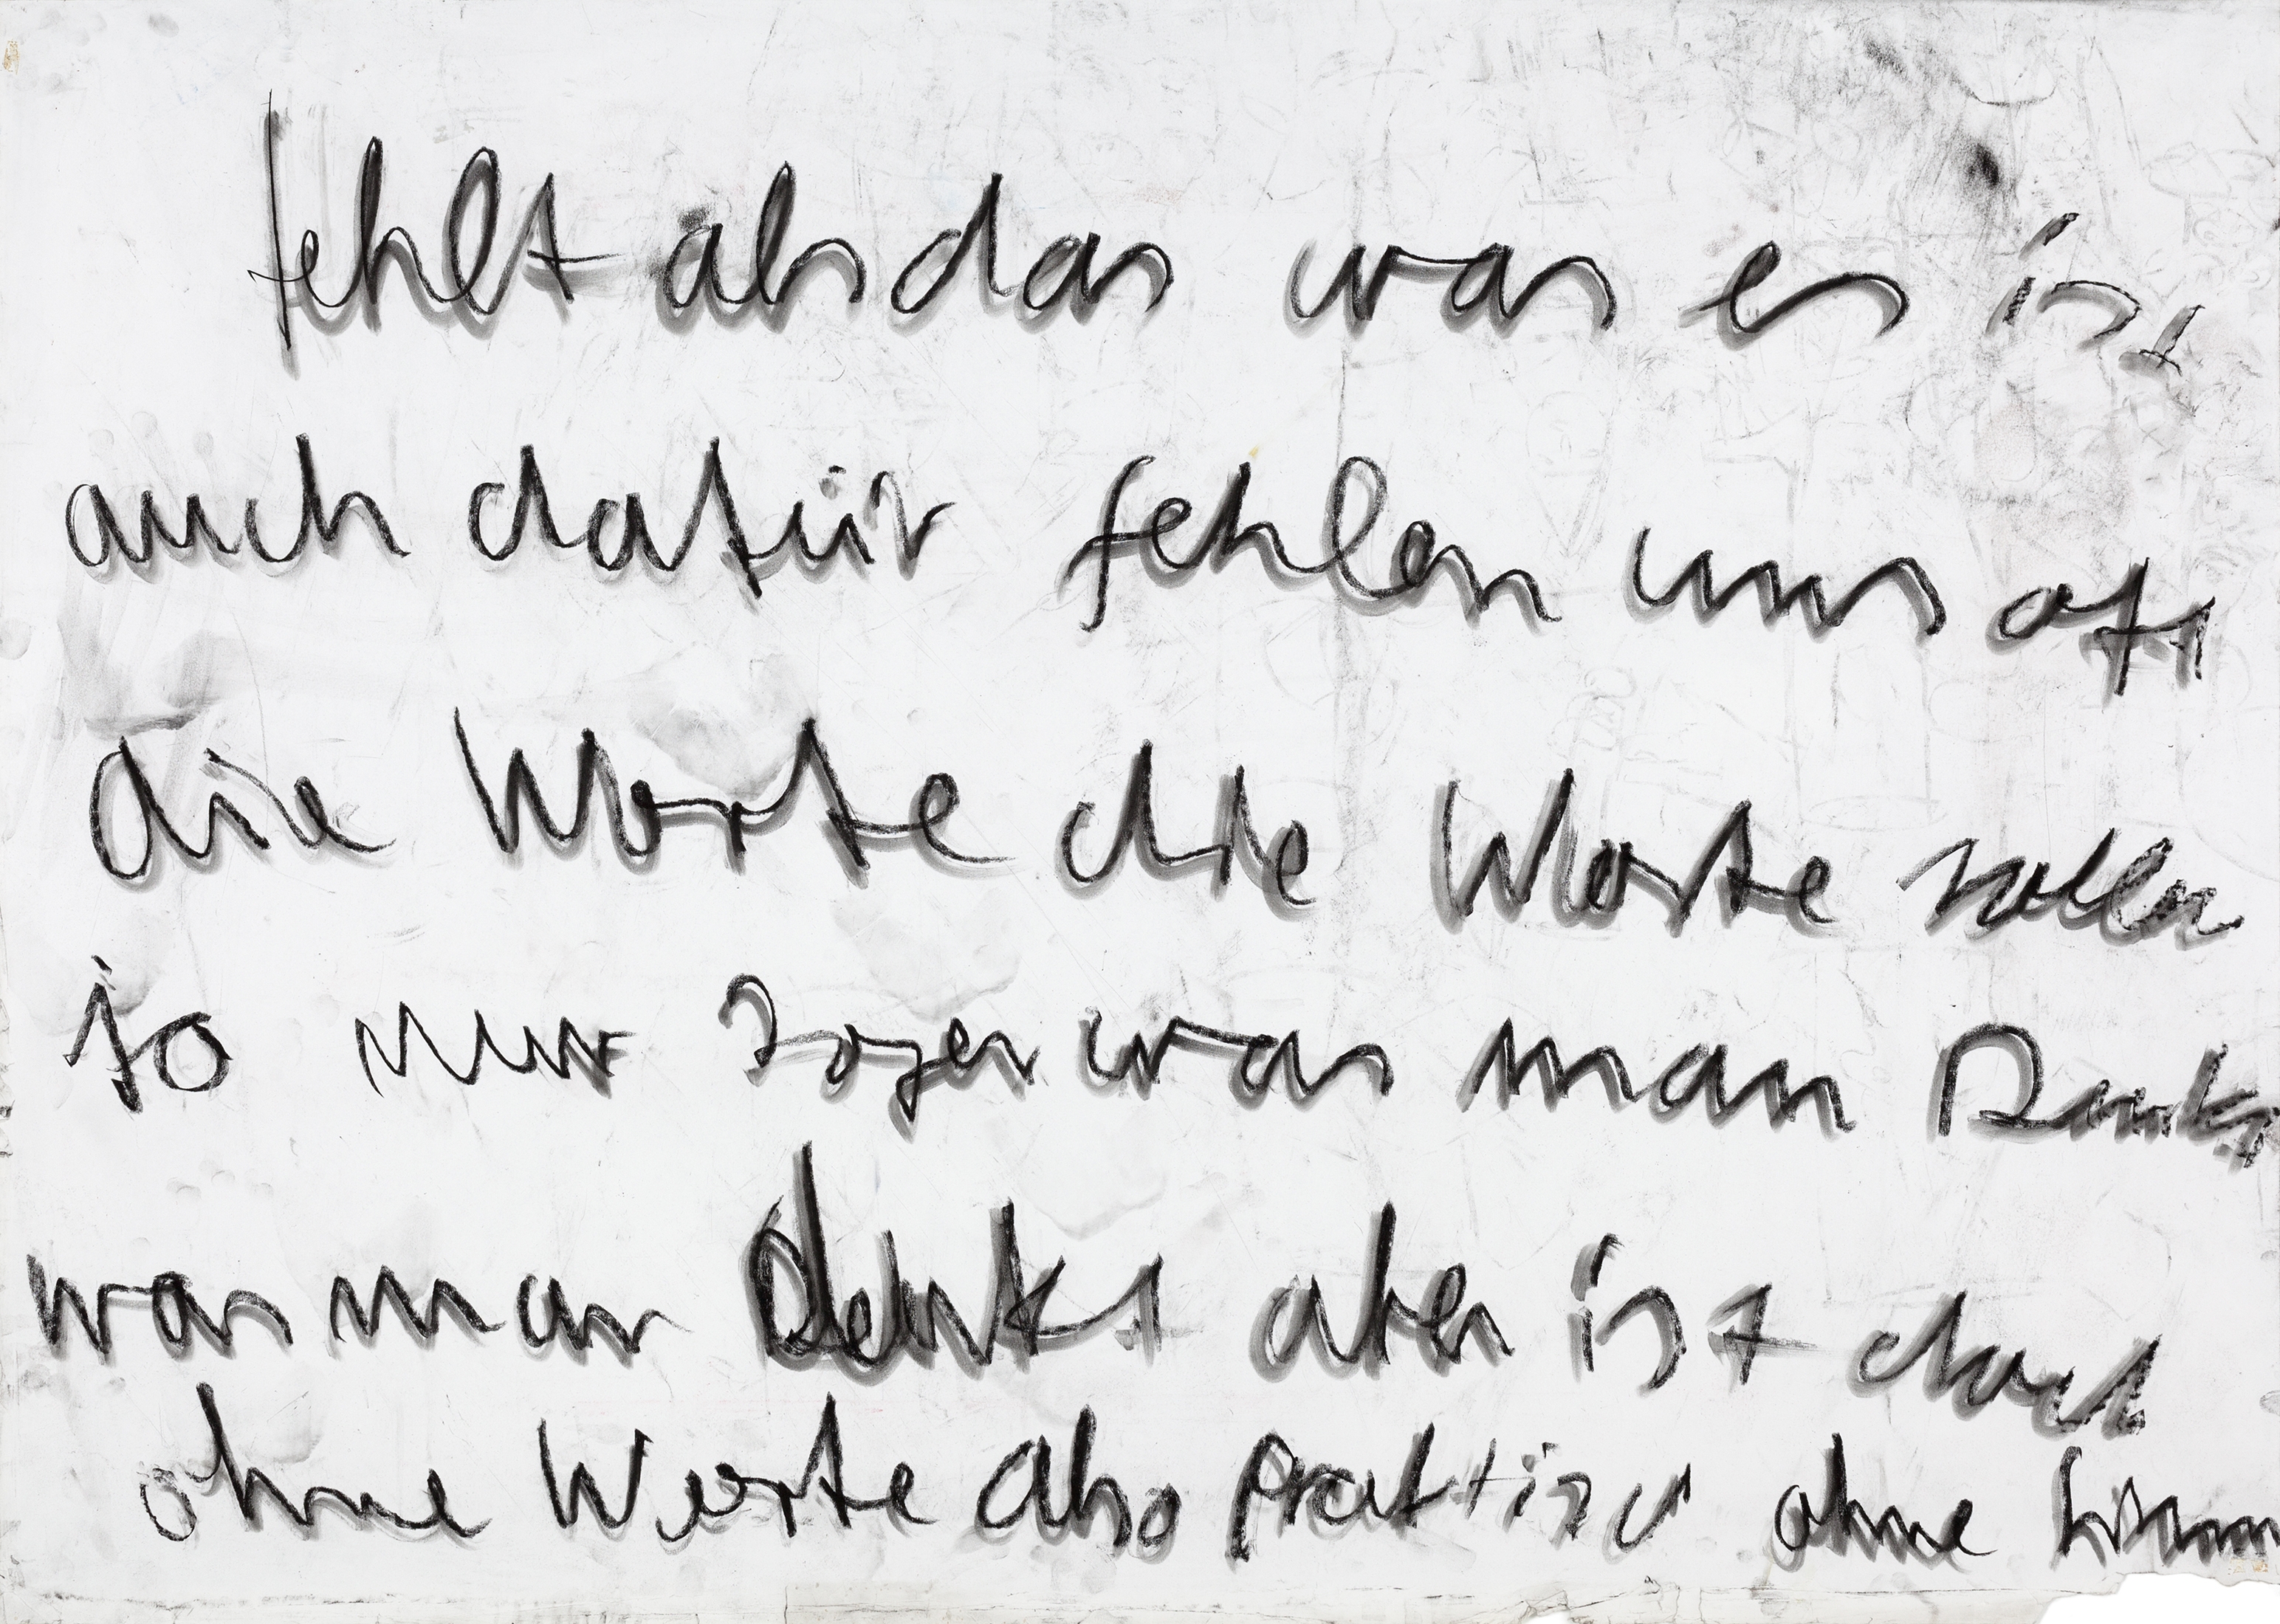 fehlt als das was es ist
auch dafür fehlen uns oft
die Worte die Worte sollen
ja nur sagen was man Denkt
was man denkt aber ist doch
ohne Worte also praktisch ohne